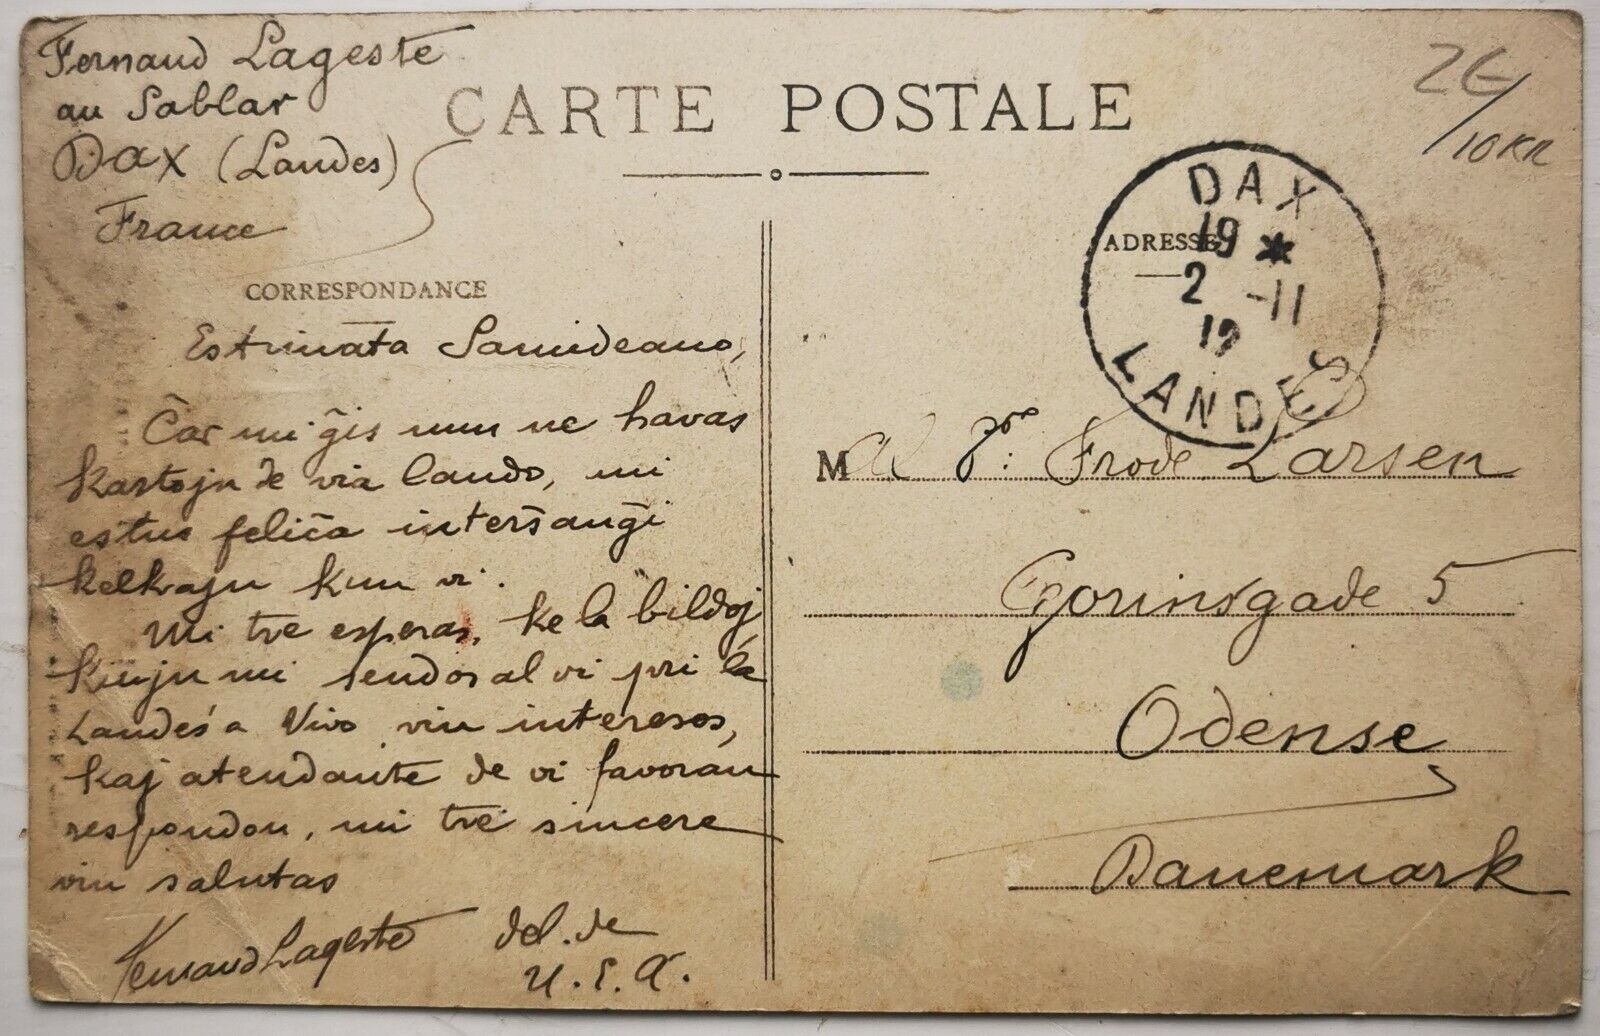 Fernand Lageste
au Sablar
Dax (Landes)
France
CARTE POSTALE
CORRESPONDANCE
Estimata Samideano,
Ĉar mi ĝis nun ne havas
kartojn de via lando, mi
estus feliĉa interŝanĝi
kelkajn kun vi.
Mi tre esperas, ke la bildoj
kiujn mi sendos al vi pri la
Landes'a Vivo vin interesos,
kaj atendante de vi favoran
respondon, mi tre sincere
vin salutas
Fernand Lageste
del. de
U.E.A.
10 KR
ADRESSE
DAX
19 *
2 -11
LANDES
M
Frode Larsen
5
Odense
Danemark